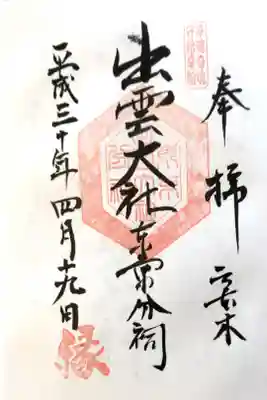 奉拝 六本木
出雲大社東京分祠
平成三十年四月十九日
縁